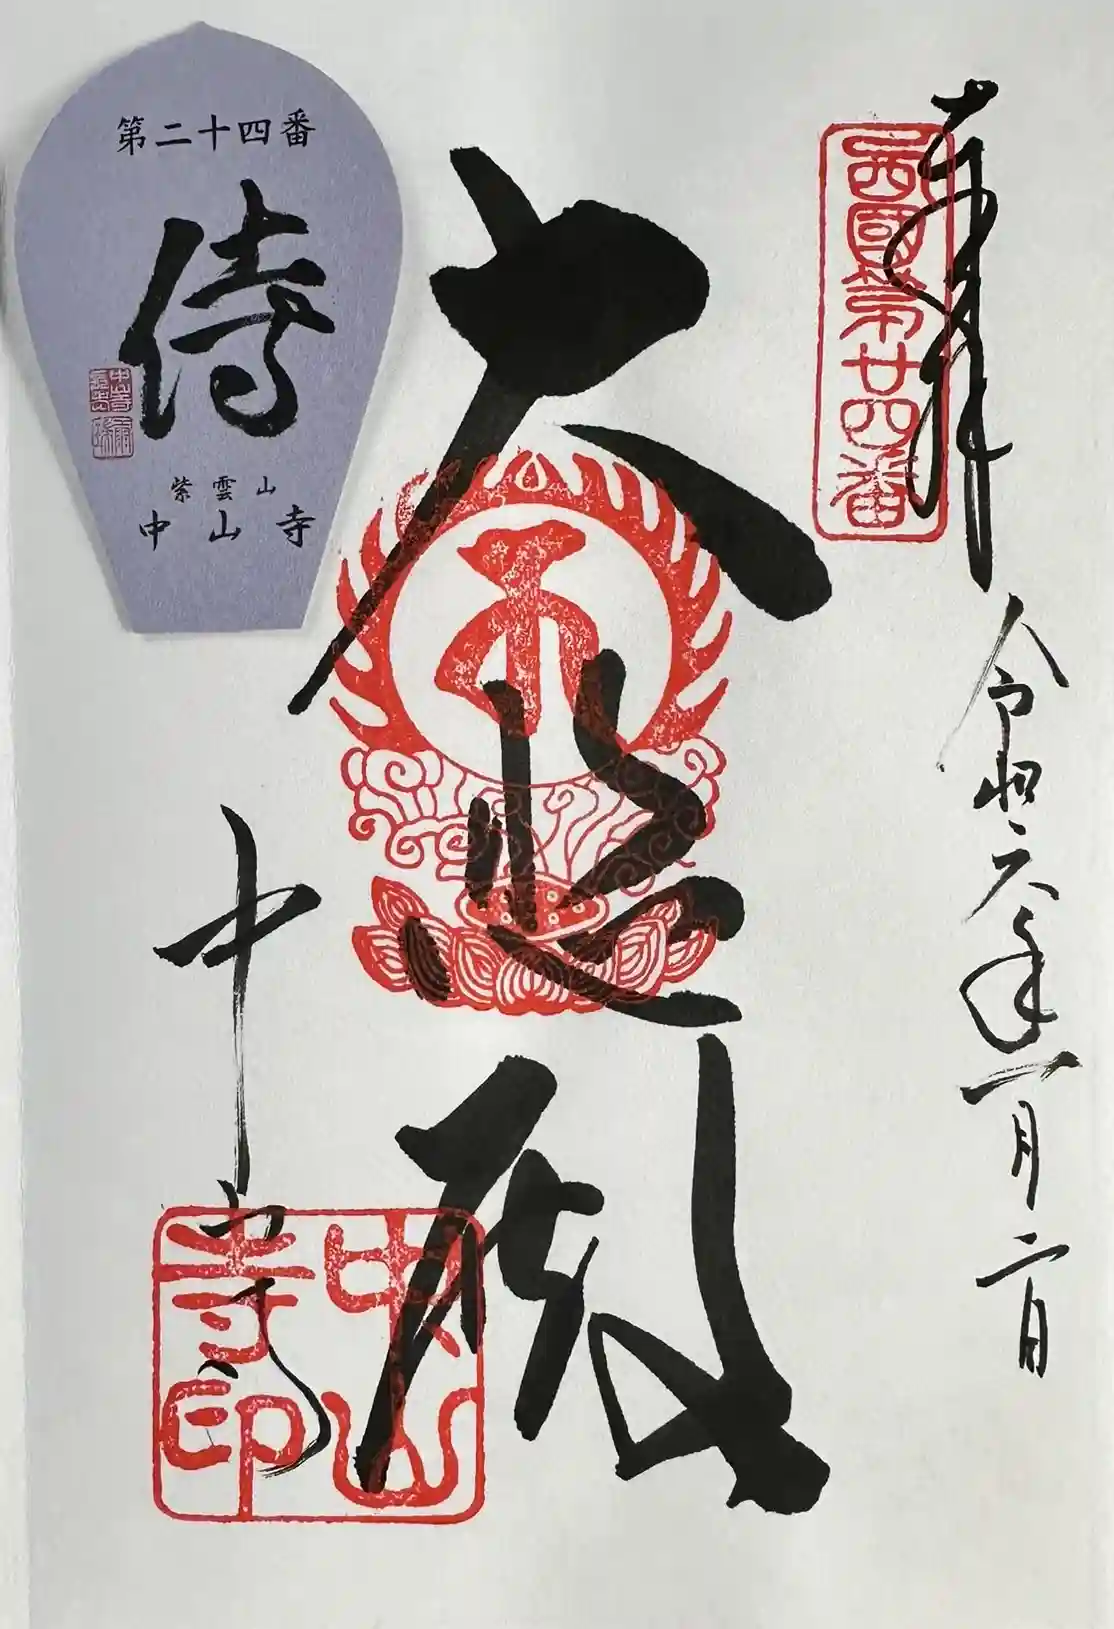 奉拝
西國第廿四番
令和六年一月二日
大悲殿
中山寺
中山寺印
第二十四番
侍
紫雲山
中山寺